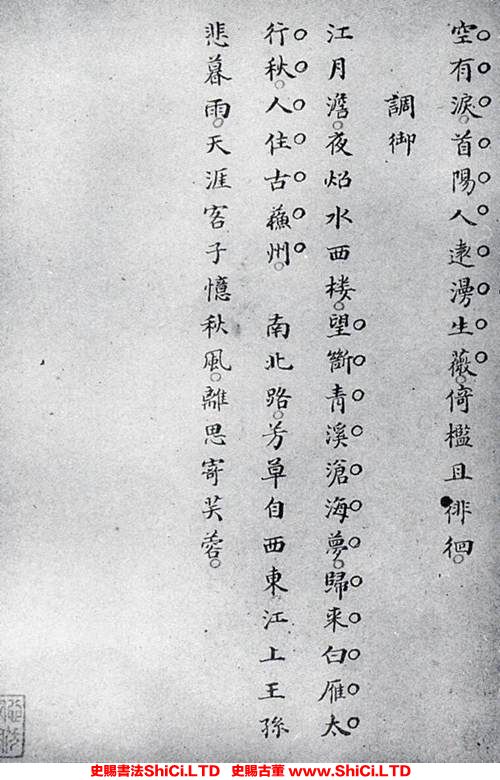 空有淚首陽人遠漫生薇倚檻且徘徊
調御
江月澹夜炤水西楼望斷青溪滄海夢歸来白雁太
行秋人住古蘓州　南北路芳草自西東江上王孫
悲暮雨天涯客子憶秋風離思寄芙蓉
史賜書法ShiCi.LTD 史賜古董 www.ShiCi.LTD